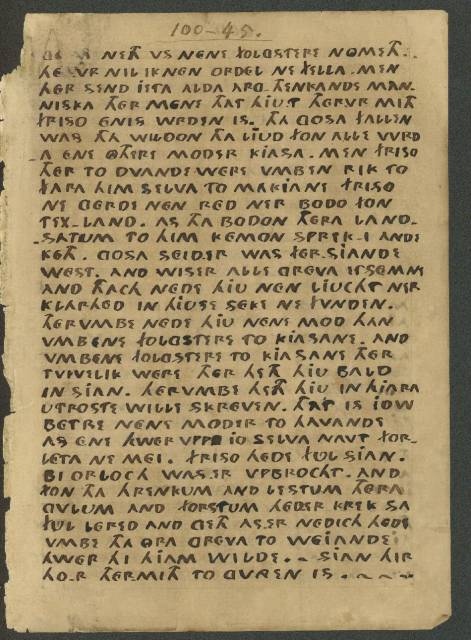 100-45.
NETH VS NENE FOLGSTERE NOMETH.
HE.VR NIL IK NEN ORDEL NE FELLA. MEN
HER SEND IETA ALDA ARG THENKANDE MAN-
NISKA THER MENE THAT HIU.T THERVR MITH
FRISO ENIS WRDEN IS. THA GOSA FALLEN
WAS THA WILDON THA LIUD FON ALLE WRD
A ENE OTHERE MODER KIASA. MEN FRISO
THER TO DVANDE WERE VMBEN RIK TO
FARA HIM SELVA TO MAKIANE FRISO
NE GERDE NEN RED NER BODO FON
TEX-LAND. AS THA BODON THERA LAND-
-SATUM TO HIM KEMON SPREK-I ANDE
KETH. GOSA SEIDER WAS FER.SIANDE
WEST. AND WISER ALLE GREVA ETSEMNE
AND THACH NEDE HIU NEN LIUCHT NER
KLARHED IN HIUSE SEKE NE FVNDEN.
THERVMBE NEDE HIU NENE MOD HAN
VMBENE FOLGSTERE TO KIASANE. AND
VMBENE FOLGSTERE TO KIASANE THER
TVIVELIK WERE THER HETH HIU BALD
IN SIAN. HERVMBE HETH HIU IN HIARA
UTROSTE WILLE SKREVEN. THAT IS IOW
BETRE NENE MODER TO HAVANDE
AS ENE HWER VPPA IO SELVA NAVT FOR-
LETA NE MEI. FRISO HEDE FUL SIAN.
BI ORLOCH WAS.ER VPBROCHT. AND
FON THA HRENKUM AND LESTUM THERA
GVLUM AND FORSTUM HEDER KREK SA
FUL LERED AND GETH AS.ER NEDICH HEDE
VMBE THA ORA GREVA TO WEIANDE
HWER HI HIAM WILDE. ~ SIAN HIR
HO.R THERMITH TO GVNGEN IS. ~ ~ ~